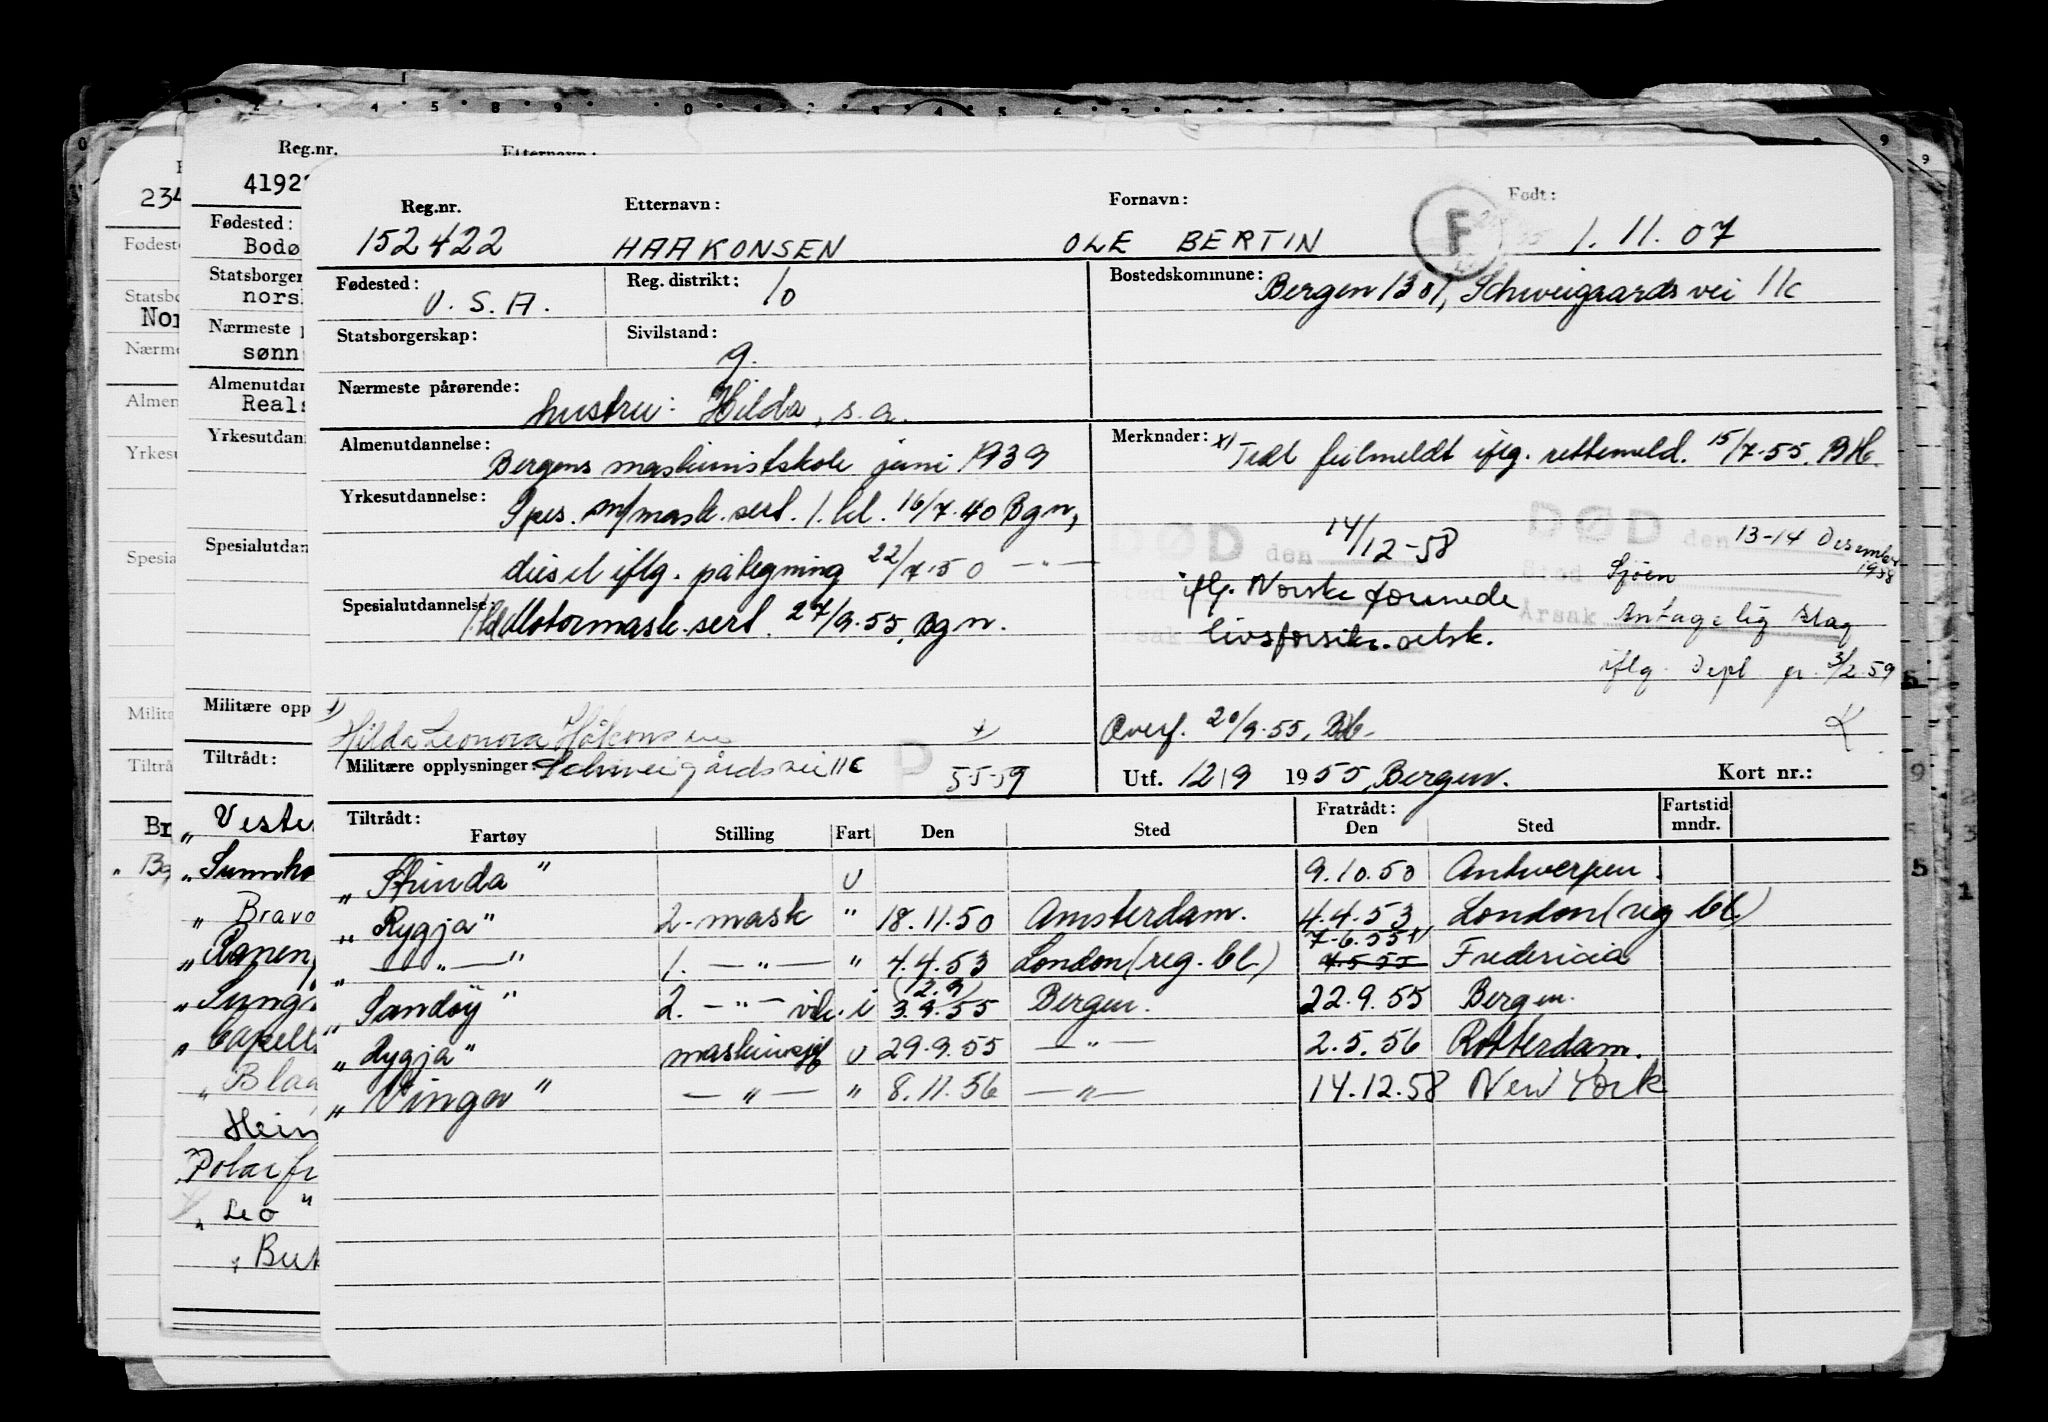 Reg.nr. Etternavn: Fornavn: Født:
152422 HAAKONSEN OLE BERTIN F 1.11.07
Fødested: U.S.A. Reg. distrikt: 10 Bostedskommune: Bergen 1301, Schweigaards vei 11c
Statsborgerskap: Sivilstand: g.
Nærmeste pårørende: hustru: Hilda, s.a.
Almenutdannelse: Bergens maskinistskole juni 1939
Merknader: x) Trdt feilmeldt iflg. rettemeld. 15/7-55. BH.
Yrkesutdannelse: Spes. m/mask. sert. 1. kl. 16/7.40 Bgn,
diesel iflg. påtegning 22/7.50 — " —
Spesialutdannelse: 1.kl Motormask. sert. 27/9.55, Bgn.
DØD den 14/12-58
iflg. Norske forenede
livsforsikr. selsk.
DØD den 13-14 Desember 1958
Sted Sjøen
Årsak Antagelig slag
iflg. Depl gr. 3/2.59
x) Hilda Leonora Håkonsen x)
Overf. 20/9-55, BH.
Militære opplysninger: Schweigårdsvei 11c P 5-5-59
Utf. 12/9 1955, Bergen. Kort nr.:
Tiltrådt: Fratrådt: Fartstid
Fartøy Stilling Fart Den Sted Den Sted mndr.
„ Strinda " u 9.10.50 Antwerpen.
„ Rygja" 2. mask " 18.11.50 Amsterdam. 4.4.53 London (reg. bl.)
„ — " — " 1. — " — " 4.4.53 London (reg. bl.) 7-6.55 x) 4.5.55 Fredericia
„ Sandøy " 2. — " — vik. i (2.9) 3.9.55 Bergen. 22.9.55 Bergen.
„ Rygja" maskinsjef u 29.9.55 — " — 2.5.56 Rotterdam.
„ Vinga " — " — " 8.11.56 — " — 14.12.58 New York
Reg.nr.
4192
Fødested:
Bodø
Statsborger
nors
Nærmeste
sønn
Almenutdan
Reals
Yrkesutdan
Spesialutdan
Militære opp
Tiltrådt:
„ Veste
„ Sunnho
„ Bravo
„ Ranen
„ Sung
„ Capell
„ Bla
Hein
Polarfr
„ Leo "
„ But
234
Fødest
Statsbo
Nor
Nærme
Almen
Yrkesu
Spesia
Milit
Tiltrå
Br